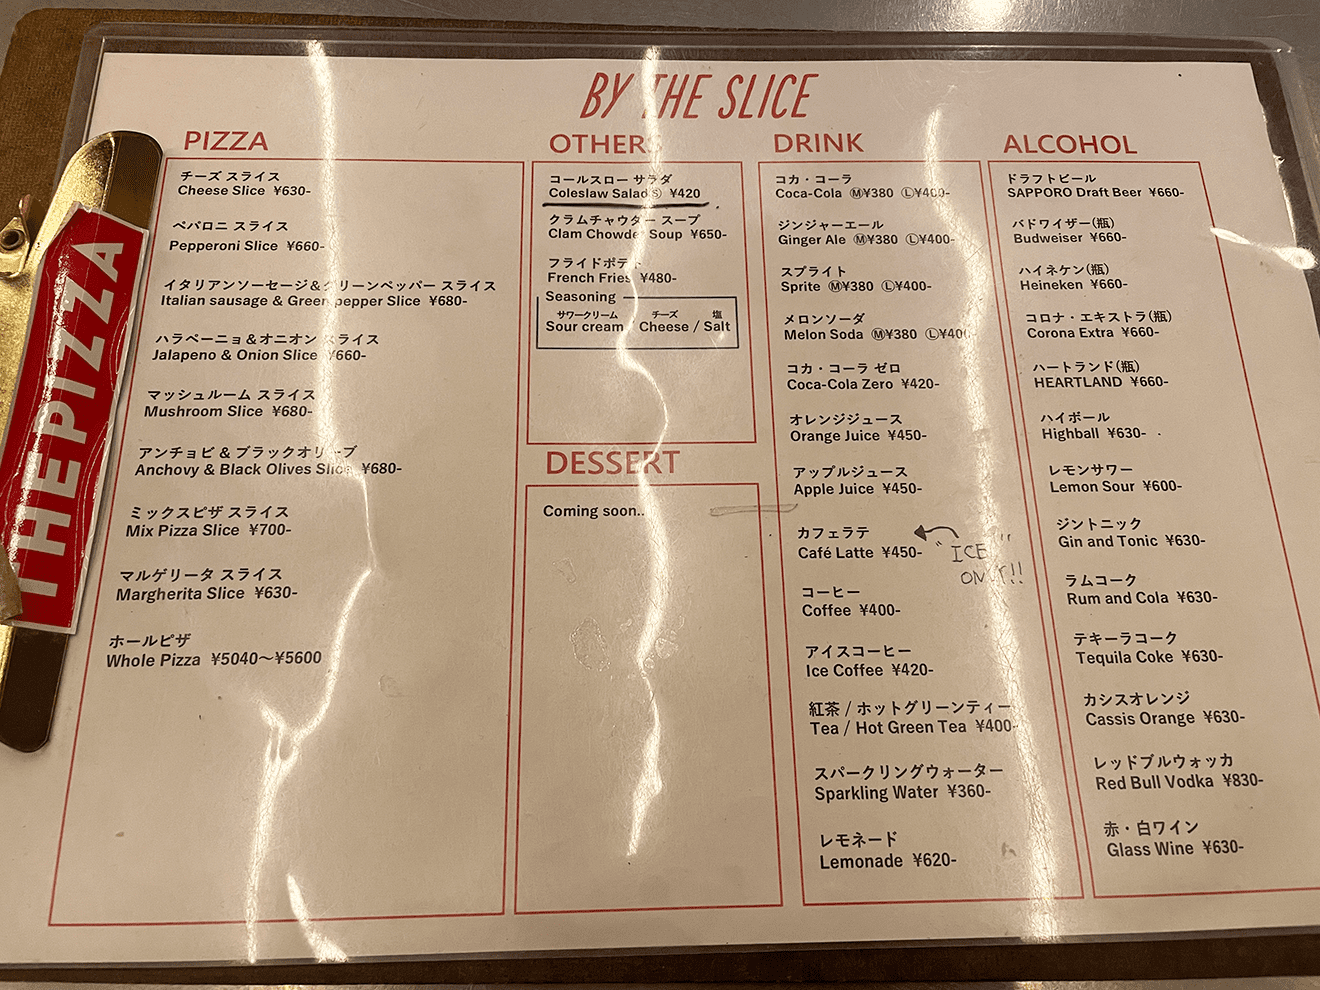 BY THE SLICE
THEPIZZA
PIZZA
チーズ スライス
Cheese Slice ¥630-
ペパロニ スライス
Pepperoni Slice ¥660-
イタリアンソーセージ＆グリーンペッパー スライス
Italian sausage & Green pepper Slice ¥680-
ハラペーニョ＆オニオン スライス
Jalapeno & Onion Slice ¥660-
マッシュルーム スライス
Mushroom Slice ¥680-
アンチョビ & ブラックオリーブ
Anchovy & Black Olives Slice ¥680-
ミックスピザ スライス
Mix Pizza Slice ¥700-
マルゲリータ スライス
Margherita Slice ¥630-
ホールピザ
Whole Pizza ¥5040〜¥5600
OTHERS
コールスロー サラダ
Coleslaw Salad Ⓢ ¥420
クラムチャウダー スープ
Clam Chowder Soup ¥650-
フライドポテト
French Fries ¥480-
Seasoning
サワークリーム チーズ 塩
Sour cream / Cheese / Salt
DESSERT
Coming soon..
DRINK
コカ・コーラ
Coca-Cola Ⓜ¥380 Ⓛ¥400-
ジンジャーエール
Ginger Ale Ⓜ¥380 Ⓛ¥400-
スプライト
Sprite Ⓜ¥380 Ⓛ¥400-
メロンソーダ
Melon Soda Ⓜ¥380 Ⓛ¥400
コカ・コーラ ゼロ
Coca-Cola Zero ¥420-
オレンジジュース
Orange Juice ¥450-
アップルジュース
Apple Juice ¥450-
カフェラテ
Café Latte ¥450-
"ICE"
ONLY!!
コーヒー
Coffee ¥400-
アイスコーヒー
Ice Coffee ¥420-
紅茶 / ホットグリーンティー
Tea / Hot Green Tea ¥400-
スパークリングウォーター
Sparkling Water ¥360-
レモネード
Lemonade ¥620-
ALCOHOL
ドラフトビール
SAPPORO Draft Beer ¥660-
バドワイザー(瓶)
Budweiser ¥660-
ハイネケン(瓶)
Heineken ¥660-
コロナ・エキストラ(瓶)
Corona Extra ¥660-
ハートランド(瓶)
HEARTLAND ¥660-
ハイボール
Highball ¥630-
レモンサワー
Lemon Sour ¥600-
ジントニック
Gin and Tonic ¥630-
ラムコーク
Rum and Cola ¥630-
テキーラコーク
Tequila Coke ¥630-
カシスオレンジ
Cassis Orange ¥630-
レッドブルウォッカ
Red Bull Vodka ¥830-
赤・白ワイン
Glass Wine ¥630-